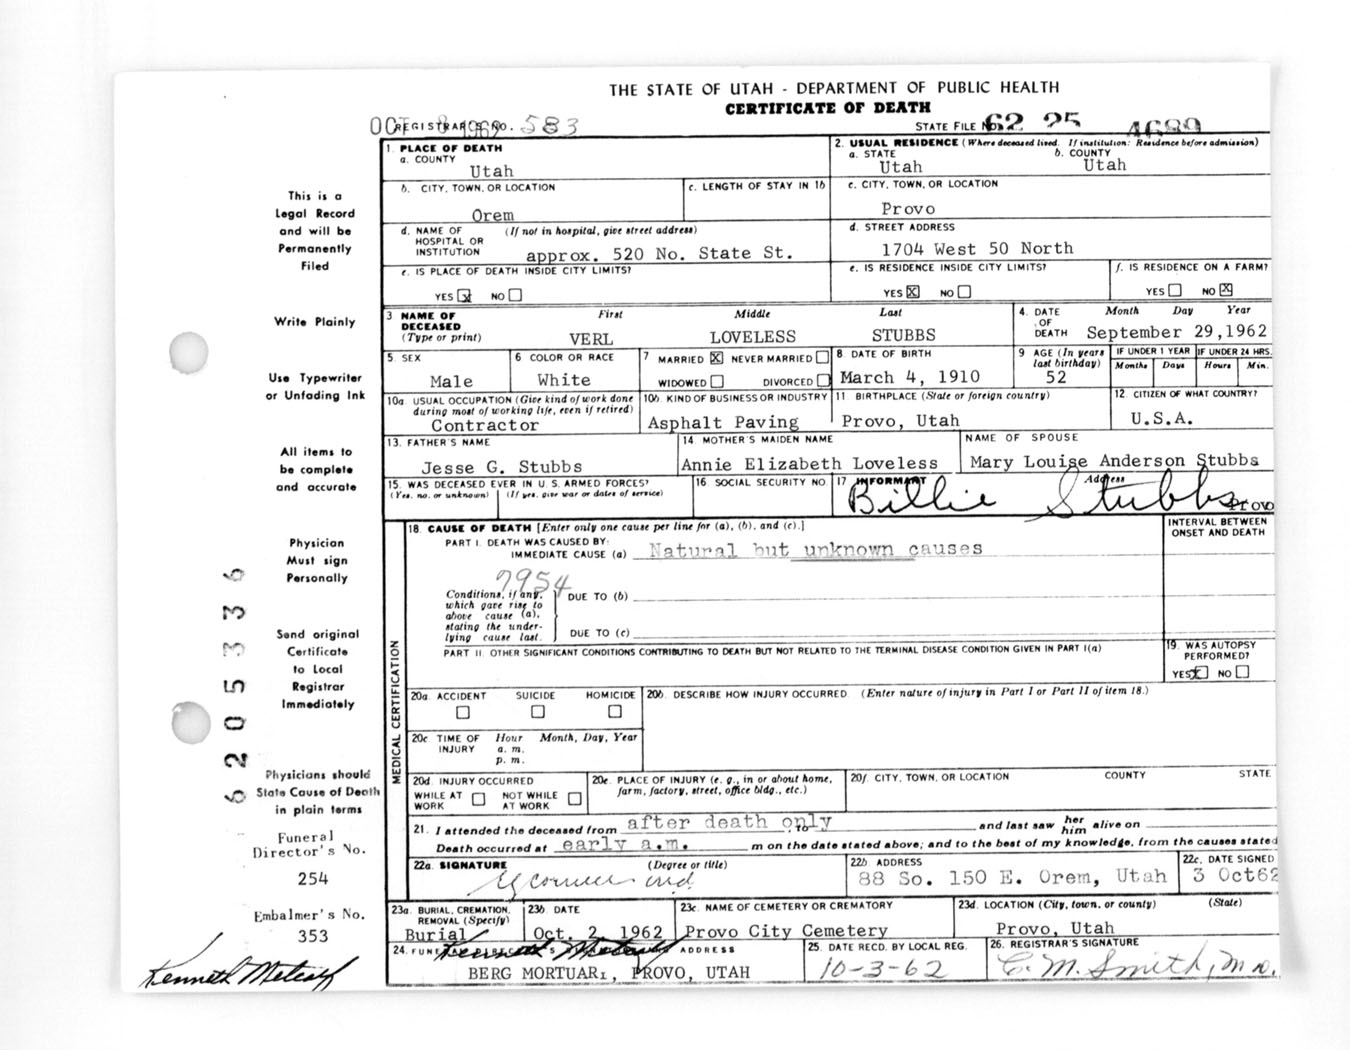 THE STATE OF UTAH - DEPARTMENT OF PUBLIC HEALTH
CERTIFICATE OF DEATH
OCT 8 1962 REGISTRAR'S NO. 583 STATE FILE NO. 62 25 4689
1. PLACE OF DEATH
a. COUNTY
Utah
2. USUAL RESIDENCE (Where deceased lived. If institution: Residence before admission)
a. STATE b. COUNTY
Utah Utah
b. CITY, TOWN, OR LOCATION
Orem
c. LENGTH OF STAY IN 1b
c. CITY, TOWN, OR LOCATION
Provo
d. NAME OF HOSPITAL OR INSTITUTION (If not in hospital, give street address)
approx. 520 No. State St.
d. STREET ADDRESS
1704 West 50 North
e. IS PLACE OF DEATH INSIDE CITY LIMITS?
YES x NO
e. IS RESIDENCE INSIDE CITY LIMITS?
YES X NO
f. IS RESIDENCE ON A FARM?
YES NO X
3 NAME OF DECEASED (Type or print)
First Middle Last
VERL LOVELESS STUBBS
4. DATE OF DEATH Month Day Year
September 29,1962
5. SEX
Male
6 COLOR OR RACE
White
7 MARRIED X NEVER MARRIED
WIDOWED DIVORCED
8 DATE OF BIRTH
March 4, 1910
9 AGE (In years last birthday)
52
IF UNDER 1 YEAR IF UNDER 24 HRS.
Months Days Hours Min.
10a. USUAL OCCUPATION (Give kind of work done during most of working life, even if retired)
Contractor
10b. KIND OF BUSINESS OR INDUSTRY
Asphalt Paving
11. BIRTHPLACE (State or foreign country)
Provo, Utah
12. CITIZEN OF WHAT COUNTRY?
U.S.A.
13. FATHER'S NAME
Jesse G. Stubbs
14. MOTHER'S MAIDEN NAME
Annie Elizabeth Loveless
NAME OF SPOUSE
Mary Louise Anderson Stubbs
15. WAS DECEASED EVER IN U.S. ARMED FORCES?
(Yes, no, or unknown) (If yes, give war or dates of service)
16. SOCIAL SECURITY NO.
17 INFORMANT Address
Billie Stubbs Provo
18. CAUSE OF DEATH [Enter only one cause per line for (a), (b), and (c).]
INTERVAL BETWEEN ONSET AND DEATH
PART I. DEATH WAS CAUSED BY:
IMMEDIATE CAUSE (a) Natural but unknown causes
7954
Conditions, if any, which gave rise to above cause (a), stating the underlying cause last.
DUE TO (b)
DUE TO (c)
PART II. OTHER SIGNIFICANT CONDITIONS CONTRIBUTING TO DEATH BUT NOT RELATED TO THE TERMINAL DISEASE CONDITION GIVEN IN PART I(a)
19. WAS AUTOPSY PERFORMED?
YES X NO
MEDICAL CERTIFICATION
20a. ACCIDENT SUICIDE HOMICIDE
20b. DESCRIBE HOW INJURY OCCURRED. (Enter nature of injury in Part I or Part II of item 18.)
20c. TIME OF INJURY Hour Month, Day, Year
a. m.
p. m.
20d. INJURY OCCURRED
WHILE AT WORK NOT WHILE AT WORK
20e. PLACE OF INJURY (e. g., in or about home, farm, factory, street, office bldg., etc.)
20f. CITY, TOWN, OR LOCATION COUNTY STATE
21. I attended the deceased from after death only, to and last saw her him alive on
Death occurred at early a.m. m on the date stated above; and to the best of my knowledge, from the causes stated
22a. SIGNATURE (Degree or title)
md
22b ADDRESS
88 So. 150 E. Orem, Utah
22c. DATE SIGNED
3 Oct62
23a. BURIAL, CREMATION, REMOVAL (Specify)
Burial
23b. DATE
Oct. 2, 1962
23c. NAME OF CEMETERY OR CREMATORY
Provo City Cemetery
23d. LOCATION (City, town, or county) (State)
Provo, Utah
24. FUNERAL DIRECTOR'S SIGNATURE ADDRESS
Kenneth Metcalf
BERG MORTUARY, PROVO, UTAH
25. DATE RECD. BY LOCAL REG.
10-3-62
26. REGISTRAR'S SIGNATURE
C. M. Smith, M.D.
This is a
Legal Record
and will be
Permanently
Filed
Write Plainly
Use Typewriter
or Unfading Ink
All items to
be complete
and accurate
Physician
Must sign
Personally
Send original
Certificate
to Local
Registrar
Immediately
Physicians should
State Cause of Death
in plain terms
Funeral
Director's No.
254
Embalmer's No.
353
Kenneth Metcalf